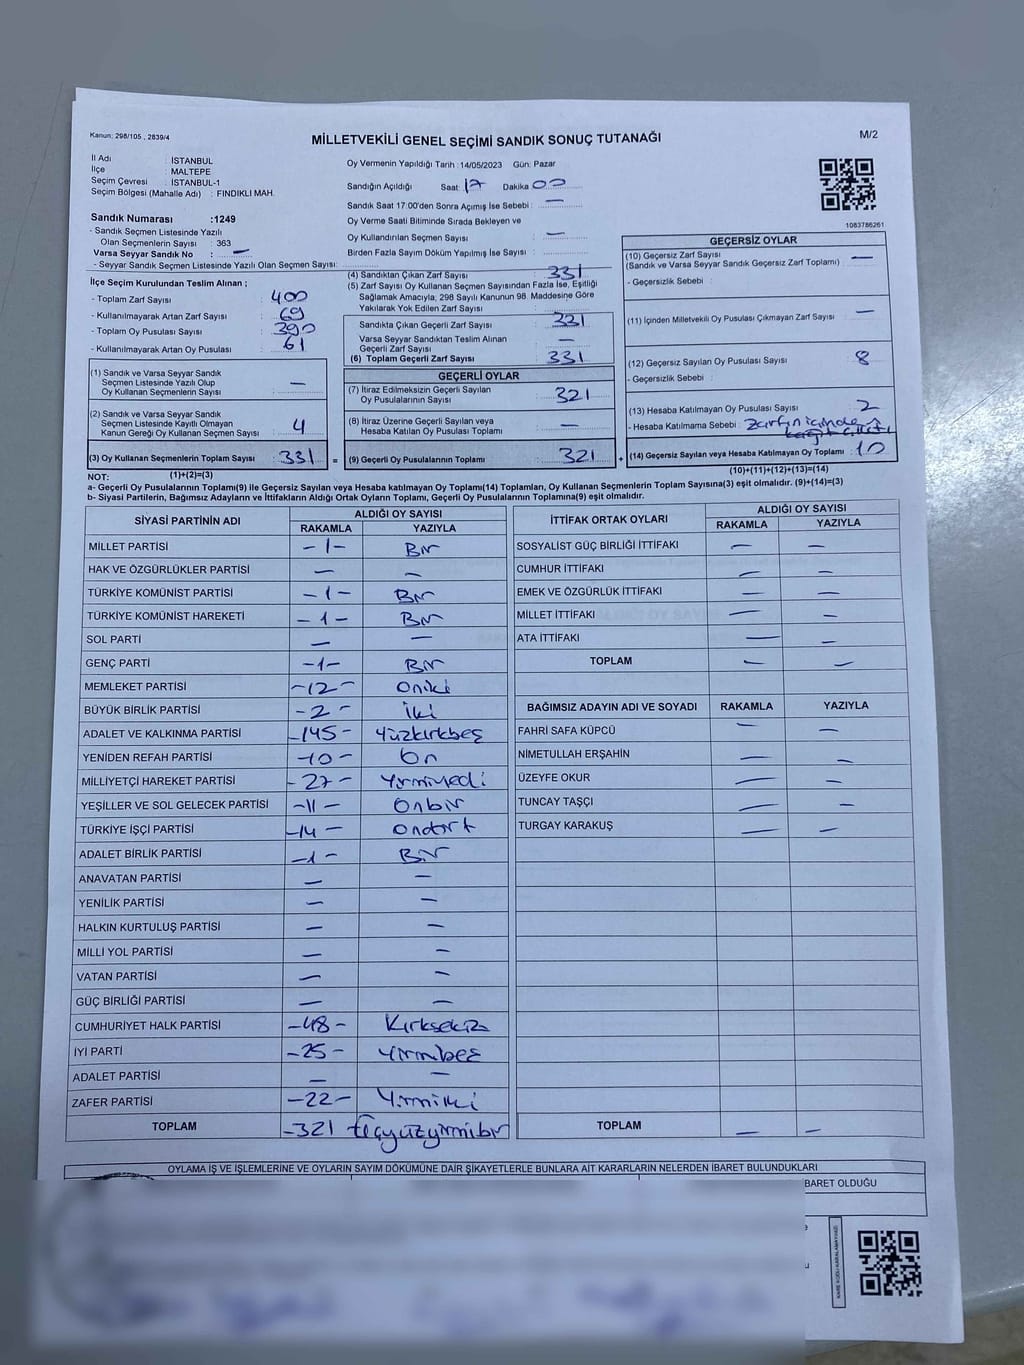 Kanun: 298/105 , 2839/4
MİLLETVEKİLİ GENEL SEÇİMİ SANDIK SONUÇ TUTANAĞI
M/2
İl Adı : İSTANBUL
İlçe : MALTEPE
Seçim Çevresi : İSTANBUL-1
Seçim Bölgesi (Mahalle Adı) : FINDIKLI MAH.
Sandık Numarası :1249
- Sandık Seçmen Listesinde Yazılı
Olan Seçmenlerin Sayısı : 363
Varsa Seyyar Sandık No : —
- Seyyar Sandık Seçmen Listesinde Yazılı Olan Seçmen Sayısı:
İlçe Seçim Kurulundan Teslim Alınan ;
- Toplam Zarf Sayısı : 400
- Kullanılmayarak Artan Zarf Sayısı : 69
- Toplam Oy Pusulası Sayısı : 390
- Kullanılmayarak Artan Oy Pusulası : 61
(1) Sandık ve Varsa Seyyar Sandık
Seçmen Listesinde Yazılı Olup
Oy Kullanan Seçmenlerin Sayısı : —
(2) Sandık ve Varsa Seyyar Sandık
Seçmen Listesinde Kayıtlı Olmayan
Kanun Gereği Oy Kullanan Seçmen Sayısı : 4
(3) Oy Kullanan Seçmenlerin Toplam Sayısı : 331
(1)+(2)=(3)
Oy Vermenin Yapıldığı Tarih :14/05/2023 Gün: Pazar
Sandığın Açıldığı Saat: 17 Dakika 00
Sandık Saat 17:00'den Sonra Açmış İse Sebebi : —
Oy Verme Saati Bitiminde Sırada Bekleyen ve
Oy Kullandırılan Seçmen Sayısı : —
Birden Fazla Sayım Döküm Yapılmış İse Sayısı :
(4) Sandıktan Çıkan Zarf Sayısı : 331
(5) Zarf Sayısı Oy Kullanan Seçmen Sayısından Fazla İse, Eşitliği
Sağlamak Amacıyla, 298 Sayılı Kanunun 98. Maddesine Göre
Yakılarak Yok Edilen Zarf Sayısı :
Sandıkta Çıkan Geçerli Zarf Sayısı : 331
Varsa Seyyar Sandıktan Teslim Alınan
Geçerli Zarf Sayısı : —
(6) Toplam Geçerli Zarf Sayısı : 331
GEÇERLİ OYLAR
(7) İtiraz Edilmeksizin Geçerli Sayılan
Oy Pusulalarının Sayısı : 321
(8) İtiraz Üzerine Geçerli Sayılan veya
Hesaba Katılan Oy Pusulası Toplamı : —
= (9) Geçerli Oy Pusulalarının Toplamı : 321 +
1083786261
GEÇERSİZ OYLAR
(10) Geçersiz Zarf Sayısı : —
(Sandık ve Varsa Seyyar Sandık Geçersiz Zarf Toplamı)
- Geçersizlik Sebebi :
(11) İçinden Milletvekili Oy Pusulası Çıkmayan Zarf Sayısı : —
(12) Geçersiz Sayılan Oy Pusulası Sayısı : 8
- Geçersizlik Sebebi :
(13) Hesaba Katılmayan Oy Pusulası Sayısı : 2
- Hesaba Katılmama Sebebi : zarfın içinden
(14) Geçersiz Sayılan veya Hesaba Katılmayan Oy Toplamı : 10
(10)+(11)+(12)+(13)=(14)
NOT:
a- Geçerli Oy Pusulalarının Toplamı(9) ile Geçersiz Sayılan veya Hesaba Katılmayan Oy Toplamı(14) Toplamları, Oy Kullanan Seçmenlerin Toplam Sayısına(3) eşit olmalıdır. (9)+(14)=(3)
b- Siyasi Partilerin, Bağımsız Adayların ve İttifakların Aldığı Ortak Oyların Toplamı, Geçerli Oy Pusulalarının Toplamına(9) eşit olmalıdır.
SİYASİ PARTİNİN ADI ALDIĞI OY SAYISI
RAKAMLA YAZIYLA
MİLLET PARTİSİ -1- Bir
HAK VE ÖZGÜRLÜKLER PARTİSİ — —
TÜRKİYE KOMÜNİST PARTİSİ -1- Bir
TÜRKİYE KOMÜNİST HAREKETİ -1- Bir
SOL PARTİ — —
GENÇ PARTİ -1- Bir
MEMLEKET PARTİSİ -12- Oniki
BÜYÜK BİRLİK PARTİSİ -2- İki
ADALET VE KALKINMA PARTİSİ -145- Yüzkırkbeş
YENİDEN REFAH PARTİSİ -10- On
MİLLİYETÇİ HAREKET PARTİSİ -27- Yirmiyedi
YEŞİLLER VE SOL GELECEK PARTİSİ -11- Onbir
TÜRKİYE İŞÇİ PARTİSİ -14- Ondört
ADALET BİRLİK PARTİSİ -1- Bir
ANAVATAN PARTİSİ — —
YENİLİK PARTİSİ — —
HALKIN KURTULUŞ PARTİSİ — —
MİLLİ YOL PARTİSİ — —
VATAN PARTİSİ — —
GÜÇ BİRLİĞİ PARTİSİ — —
CUMHURİYET HALK PARTİSİ -48- Kırksekiz
İYİ PARTİ -25- Yirmibeş
ADALET PARTİSİ — —
ZAFER PARTİSİ -22- Yirmiiki
TOPLAM -321 Üçyüzyirmibir
İTTİFAK ORTAK OYLARI ALDIĞI OY SAYISI
RAKAMLA YAZIYLA
SOSYALİST GÜÇ BİRLİĞİ İTTİFAKI — —
CUMHUR İTTİFAKI — —
EMEK VE ÖZGÜRLÜK İTTİFAKI — —
MİLLET İTTİFAKI — —
ATA İTTİFAKI — —
TOPLAM — —
BAĞIMSIZ ADAYIN ADI VE SOYADI RAKAMLA YAZIYLA
FAHRİ SAFA KÜPCÜ — —
NİMETULLAH ERŞAHİN — —
ÜZEYFE OKUR — —
TUNCAY TAŞÇI — —
TURGAY KARAKUŞ — —
TOPLAM — —
OYLAMA İŞ VE İŞLEMLERİNE VE OYLARIN SAYIM DÖKÜMÜNE DAİR ŞİKAYETLERLE BUNLARA AİT KARARLARIN NELERDEN İBARET BULUNDUKLARI
BARET OLDUĞU